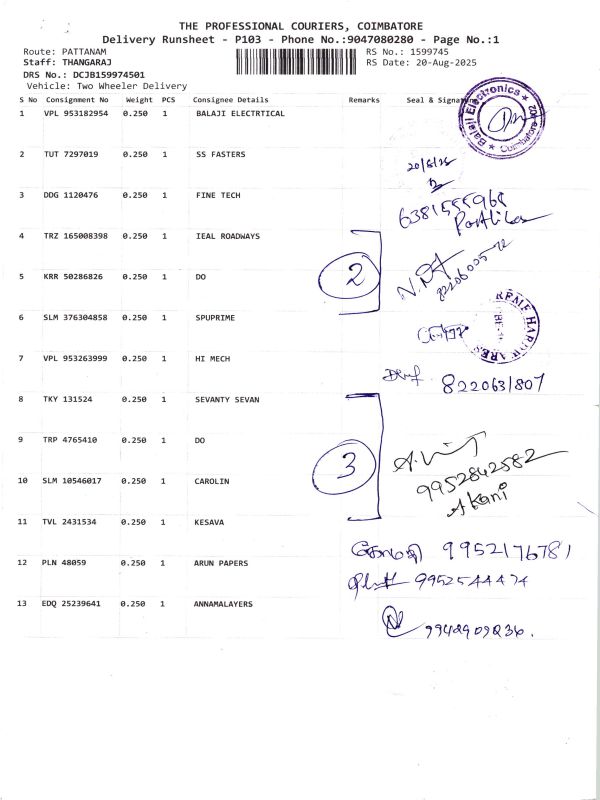 THE PROFESSIONAL COURIERS, COIMBATORE
Delivery Runsheet - P103 - Phone No.:9047080280 - Page No.:1
Route: PATTANAM
RS No.: 1599745
Staff: THANGARAJ
RS Date: 20-Aug-2025
DRS No.: DCJB159974501
Vehicle: Two Wheeler Delivery
S No Consignment No Weight PCS Consignee Details Remarks Seal & Signature
1 VPL 953182954 0.250 1 BALAJI ELECTRTICAL
Balaji Electronics Coimbatore
2 TUT 7297019 0.250 1 SS FASTERS
20/8/25
3 DDG 1120476 0.250 1 FINE TECH
6381555968
4 TRZ 165008398 0.250 1 IEAL ROADWAYS
2
5 KRR 50286826 0.250 1 DO
6 SLM 376304858 0.250 1 SPUPRIME
HARDWARES
7 VPL 953263999 0.250 1 HI MECH
8220631807
8 TKY 131524 0.250 1 SEVANTY SEVAN
9 TRP 4765410 0.250 1 DO
3
9952842582
10 SLM 10546017 0.250 1 CAROLIN
Akani
11 TVL 2431534 0.250 1 KESAVA
கோமதி 9952176781
12 PLN 48059 0.250 1 ARUN PAPERS
9952544474
13 EDQ 25239641 0.250 1 ANNAMALAYERS
9942909236.